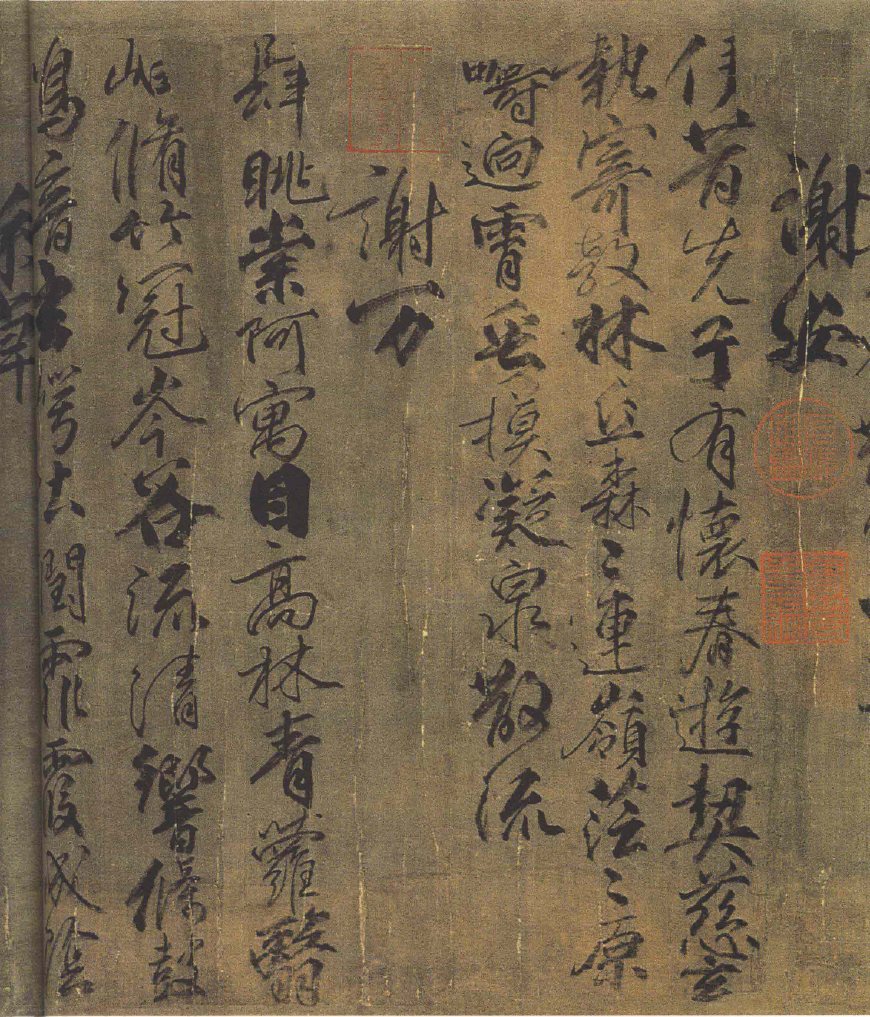 謝安
伊昔先子有懷春遊契慈言
執寄敖林丘森〻連嶺茫〻原
疇迥霄垂摸凝泉散流
謝万
肆眺崇阿寓目高林青蘿翳
岫脩竹冠岑谷流清響條鼓
鳴音玄崿吐潤霏霞成陰